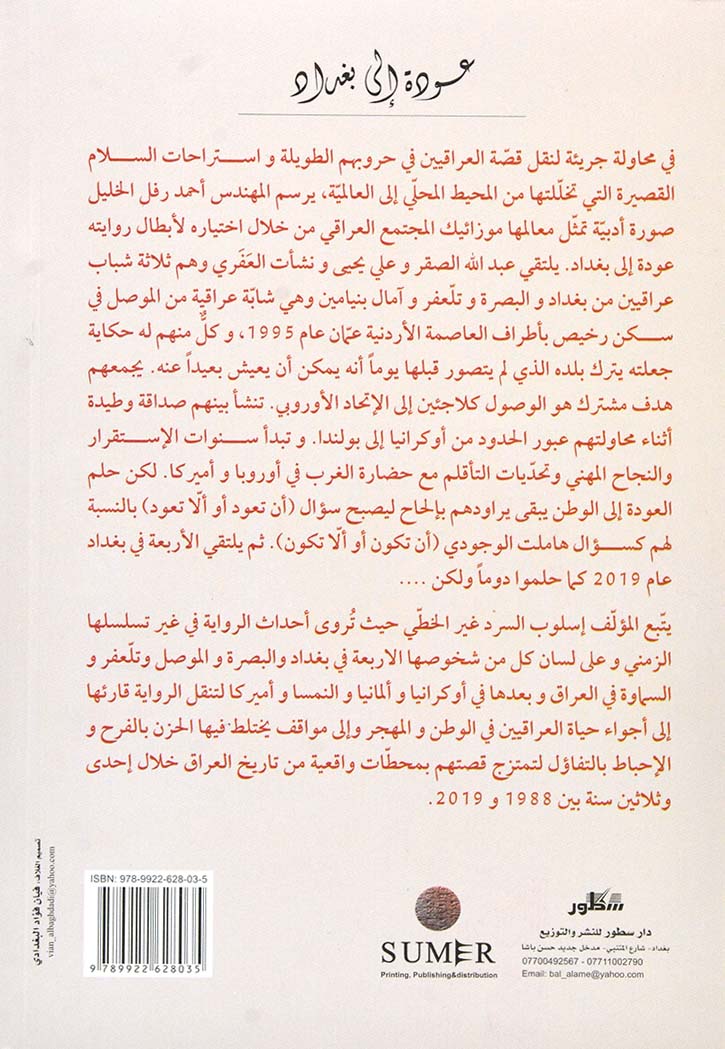 عودة إلى بغداد
في محاولة جريئة لنقل قصّة العراقيين في حروبهم الطويلة و استراحات السلام
القصيرة التي تخلّلتها من المحيط المحلّي إلى العالميّة، يرسم المهندس أحمد رفل الخليل
صورة أدبيّة تمثّل معالمها موزائيك المجتمع العراقي من خلال اختياره لأبطال روايته
عودة إلى بغداد. يلتقي عبد الله الصقر و علي يحيى و نشأت العَفَري وهم ثلاثة شباب
عراقيين من بغداد و البصرة و تلّعفر و آمال بنيامين وهي شابّة عراقية من الموصل في
سكن رخيص بأطراف العاصمة الأردنية عمّان عام 1995، و كلٌّ منهم له حكاية
جعلته يترك بلده الذي لم يتصور قبلها يوماً أنه يمكن أن يعيش بعيداً عنه. يجمعهم
هدف مشترك هو الوصول كلاجئين إلى الإتحاد الأوروبي. تنشأ بينهم صداقة وطيدة
أثناء محاولتهم عبور الحدود من أوكرانيا إلى بولندا. و تبدأ سنوات الإستقرار
والنجاح المهني وتحدّيات التأقلم مع حضارة الغرب في أوروبا و أميركا. لكن حلم
العودة إلى الوطن يبقى يراودهم بإلحاح ليصبح سؤال (أن تعود أو ألّا تعود) بالنسبة
لهم كسؤال هاملت الوجودي (أن تكون أو ألّا تكون). ثم يلتقي الأربعة في بغداد
عام 2019 كما حلموا دوماً ولكن ....
يتّبع المؤلّف إسلوب السرد غير الخطّي حيث تُروى أحداث الرواية في غير تسلسلها
الزمني و على لسان كل من شخوصها الاربعة في بغداد والبصرة و الموصل وتلّعفر و
السماوة في العراق و بعدها في أوكرانيا و ألمانيا و النمسا و أميركا لتنقل الرواية قارئها
إلى أجواء حياة العراقيين في الوطن و المهجر وإلى مواقف يختلط فيها الحزن بالفرح و
الإحباط بالتفاؤل لتمتزج قصتهم بمحطّات واقعية من تاريخ العراق خلال إحدى
وثلاثين سنة بين 1988 و 2019.
تصميم الغلاف: فيان فؤاد البغدادي
vian_albaghdadi@yahoo.com
ISBN: 978-9922-628-03-5
9 789922 628035
SUMER
Printing, Publishing&distribution
سطور
دار سطور للنشر والتوزيع
بغداد- شارع المتنبي- مدخل جديد حسن باشا
07700492567 - 07711002790
Email: bal_alame@yahoo.com